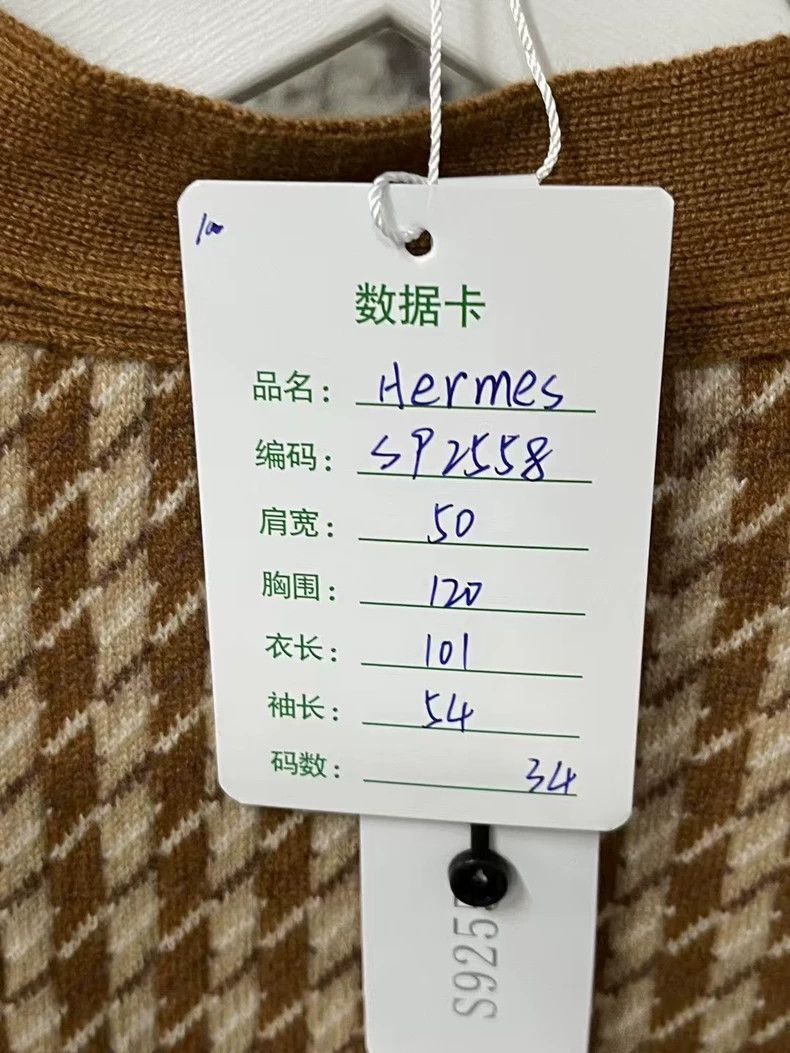 数据卡
品名： Hermes
编码： SP2558
肩宽： 50
胸围： 120
衣长： 101
袖长： 54
码数： 34
S925